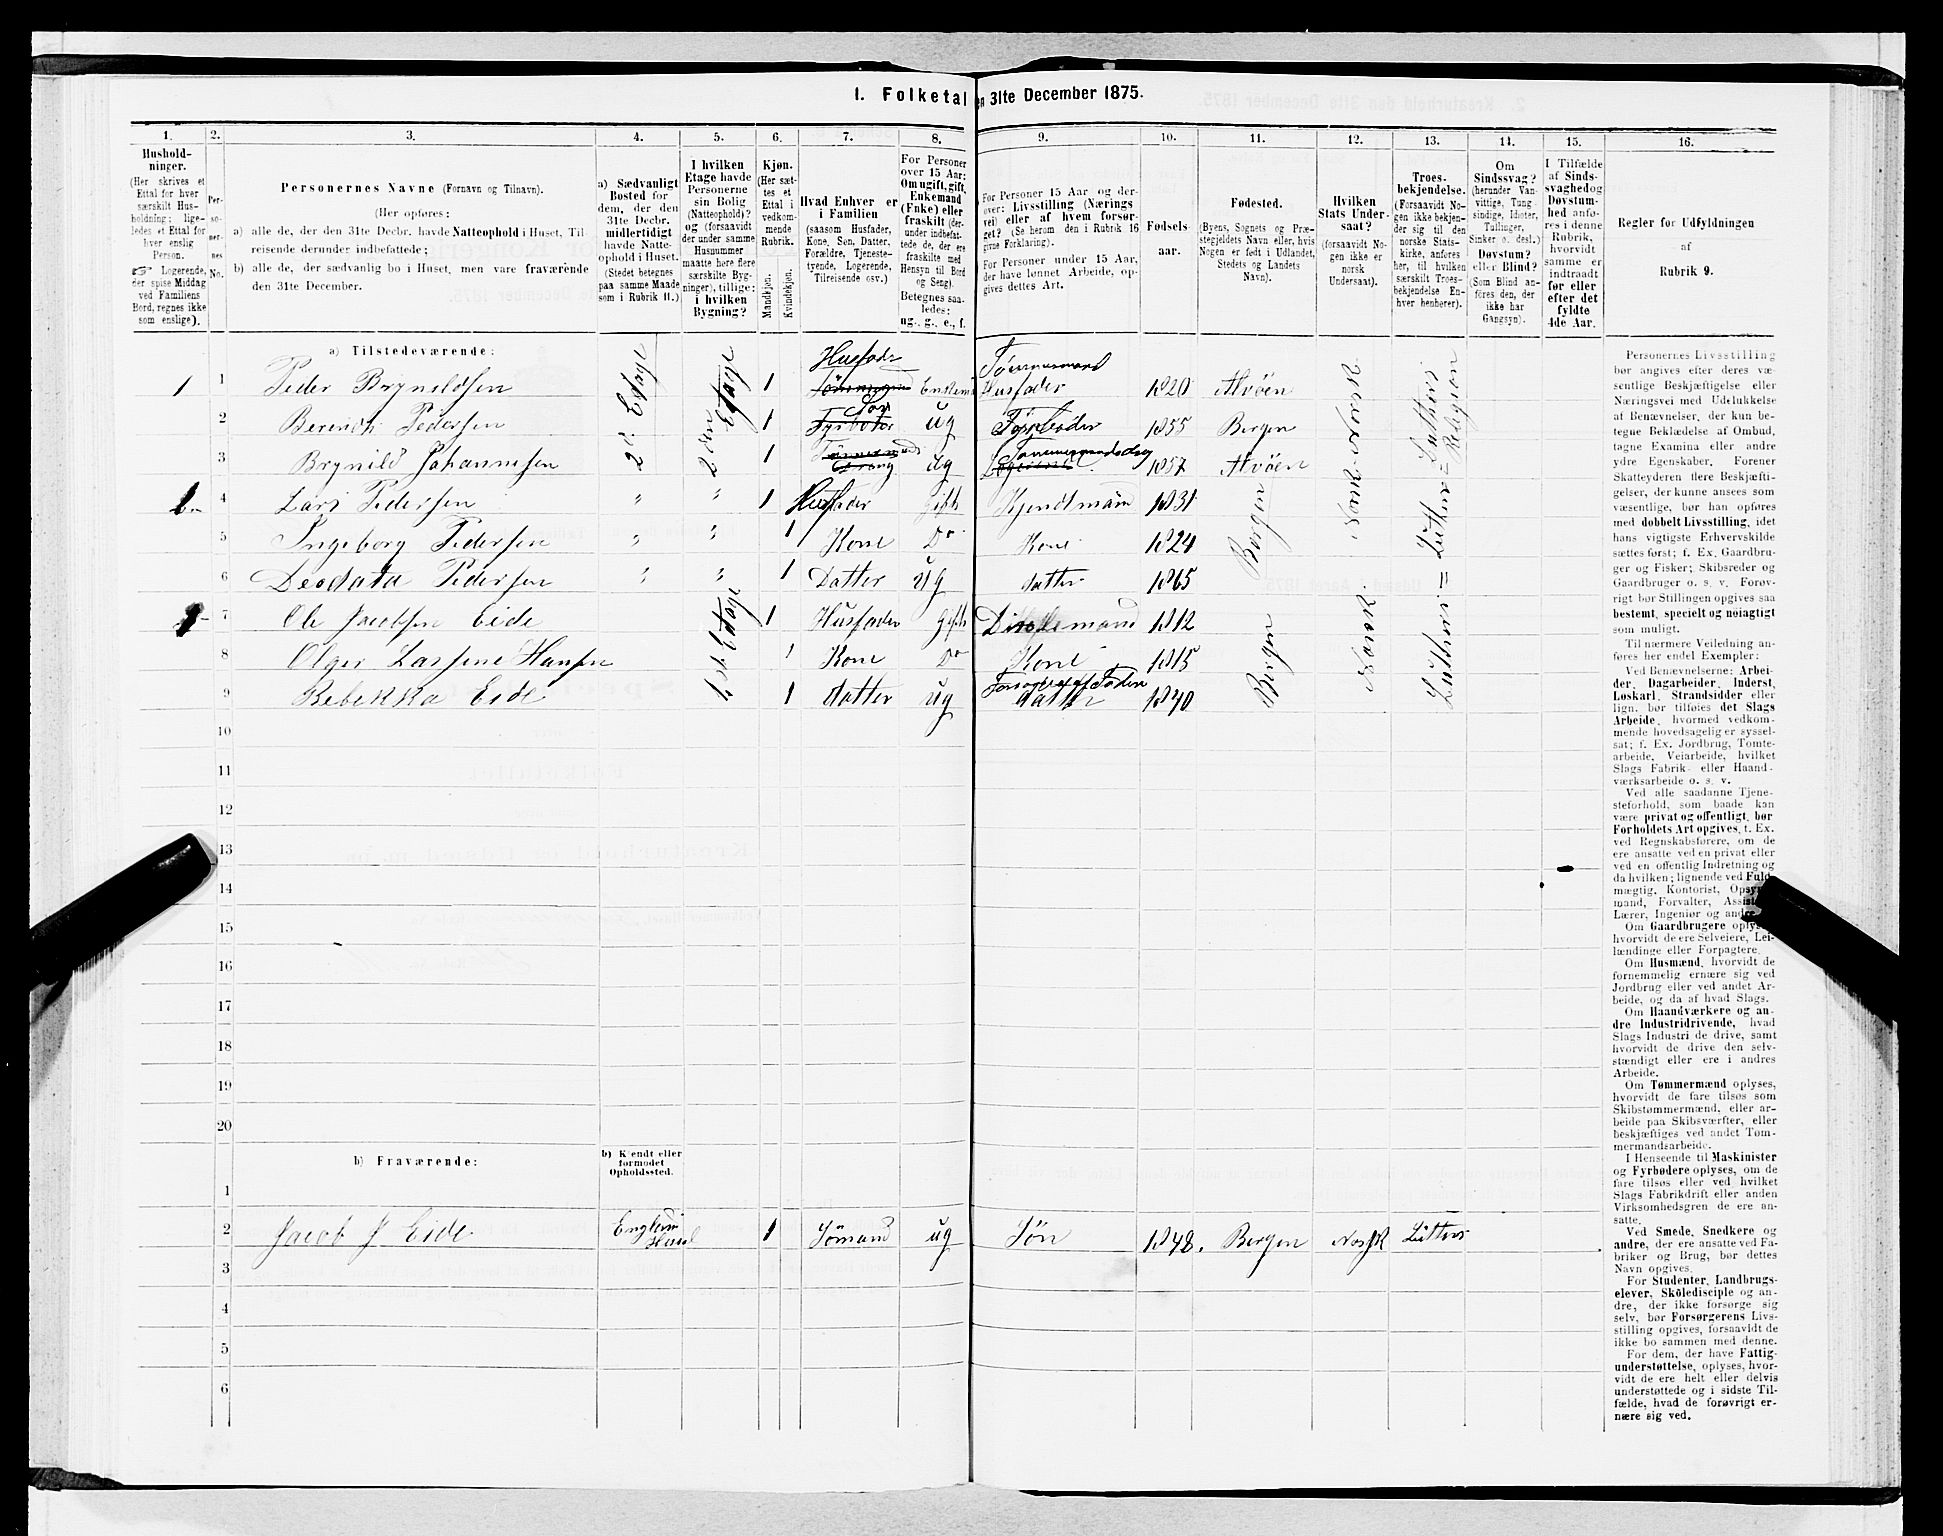 1. Folketal
en 31te December 1875.
1.
2.
3.
4.
5.
6.
7.
8.
9.
10.
11.
12.
13.
14.
15.
16.
Hushold-
ninger.
(Her skrives et
Ettal for hver
særskilt Hus-
holdning; lige-
ledes et Ettal for
hver enslig
Person.
☞ Logerende,
der spise Middag
ved Familiens
Bord, regnes ikke
som enslige).
Per-
so-
ner-
nes
No.
Personernes Navne (Fornavn og Tilnavn).
(Her opføres:
a) alle de, der den 31te Decbr. havde Natteophold i Huset, Til-
reisende derunder indbefattede;
b) alle de, der sædvanlig bo i Huset, men vare fraværende
den 31te December.
a) Sædvanligt
Bosted for
dem, der den
31te Decbr.
midlertidigt
havde Natte-
ophold i Huset.
(Stedet betegnes
paa samme Maade
som i Rubrik 11.)
I hvilken
Etage havde
Personerne
sin Bolig
(Natteophold)?
og (forsaavidt
der under samme
Husnummer
maatte høre flere
særskilte Byg-
ninger), tillige:
i hvilken
Bygning?
Kjøn.
(Her sæt-
tes et
Ettal i
vedkom-
mende
Rubrik.
Mandkjøn.
Kvindekjøn.
Hvad Enhver er
i Familien
(saasom Husfader,
Kone, Søn, Datter,
Forældre, Tjeneste-
tyende, Logerende,
Tilreisende osv.)
For Personer
over 15 Aar:
Om ugift, gift,
Enkemand
(Enke) eller
fraskilt (der-
under indbefat-
tede de, der ere
fraskilte med
Hensyn til Bord
og Seng).
Betegnes saa-
ledes:
ug., g., e., f.
For Personer 15 Aar og der-
over: Livsstilling (Nærings
vei) eller af hvem forsør-
get? (Se herom den i Rubrik 16
givne Forklaring).
For Personer under 15 Aar,
der have lønnet Arbeide, op-
gives dettes Art.
Fødsels-
aar.
Fødested.
(Byens, Sognets og Præ-
stegjeldets Navn eller, hvis
Nogen er født i Udlandet,
Stedets og Landets
Navn).
Hvilken
Stats Under-
saat?
(forsaavidt No-
gen ikke er
norsk
Undersaat).
Troes-
bekjendelse.
(Forsaavidt No-
gen ikke bekjen-
der sig til den
norske Stats-
kirke, anføres
her, til hvilken
særskilt Troes-
bekjendelse En-
hver henhører).
Om
Sindssvag?
(herunder Van-
vittige, Tung-
sindige, Idioter,
Tullinger,
Sinker o. desl.)
Døvstum?
eller Blind?
(Som Blind an-
føres den, der
ikke har
Gangsyn).
I Tilfælde
af Sinds-
svaghed og
Døvstum-
hed anfø-
res i denne
Rubrik,
hvorvidt
samme er
indtraadt
før eller
efter det
fyldte
4de Aar.
Regler for Udfyldningen
af
Rubrik 9.
a) Tilstedeværende:
1 1 Peder Brynildsen 2d. Etage 2den Etage 1 Husfader Enkem Tømmermand Husfader 1820 Alvøen Norsk Luthers Religion
2 Berendt Pedersen 1 Søn Fyrbøder ug Fyrbøder 1855 Bergen
3 Brynild Johannesen 1 ug Tømmermandsdreng 1857 Alvøen
4 Lars Pedersen " " 1 Husfader Gift Kjendtmand 1831 Bergen Norsk Luther
5 Ingeborg Pedersen " " 1 Kone Do Kone 1824
6 Deodata Pedersen " " 1 Datter ug datter 1865
7 Ole Jacobsen Eide 1ste Etage 1 Husfader gift 1812 Bergen Norsk Luthers
8 Olger Larsene Hansen 1 Kone Do Kone 1815
9 Rebekka Eide 1 datter ug Forsørget af Faderen datter 1840
10
11
12
13
14
15
16
17
18
19
20
b) Fraværende:
b) Kjendt eller
formodet
Opholdssted.
1
2 Jacob J Eide 1 Sømand ug Søn 1848. Bergen Norsk Luthers
3
4
5
6
Personernes Livsstilling
bør angives efter deres væ-
sentlige Beskjæftigelse eller
Næringsvei med Udelukkelse
af Benævnelser, der kun be-
tegne Beklædelse af Ombud,
tagne Examina eller andre
ydre Egenskaber. Forener
Skatteyderen flere Beskjæfti-
gelser, der kunne ansees som
væsentlige, bør han opføres
med dobbelt Livsstilling, idet
hans vigtigste Erhvervskilde
sættes først; f. Ex. Gaardbru-
ger og Fisker; Skibsreder og
Gaardbruger o. s. v. Forøv-
rigt bør Stillingen opgives saa
bestemt, specielt og nøiagtigt
som muligt.
Til nærmere Veiledning an-
føres her endel Exempler:
Ved Benævnelserne: Arbei-
der, Dagarbeider, Inderst,
Løskarl, Strandsidder eller
lign. bør tilføies det Slags
Arbeide, hvormed vedkom-
mende hovedsagelig er syssel-
sat; f. Ex. Jordbrug, Tomte-
arbeide, Veiarbeide, hvilket
Slags Fabrik- eller Haand-
værksarbeide o. s. v.
Ved alle saadanne Tjene-
steforhold, som baade kan
være privat og offentligt, bør
Forholdets Art opgives, t. Ex.
ved Regnskabsførere, om de
ere ansatte ved en privat eller
ved en offentlig Indretning og
da hvilken; lignende ved Fuld-
mægtig, Kontorist, Opsyns-
mand, Forvalter, Assistent,
Lærer, Ingeniør og andre.
Om Gaardbrugere oplyses,
hvorvidt de ere Selveiere, Lei-
lændinge eller Forpagtere.
Om Husmænd, hvorvidt de
fornemmelig ernære sig ved
Jordbrug eller ved andet Ar-
beide, og da af hvad Slags.
Om Haandværkere og an-
dre Industridrivende, hvad
Slags Industri de drive, samt
hvorvidt de drive den selv-
stændigt eller ere i andres
Arbeide.
Om Tømmermænd oplyses,
hvorvidt de fare tilsøs som
Skibstømmermænd, eller ar-
beide paa Skibsværfter, eller
beskjæftiges ved andet Tøm-
mermandsarbeide.
I Henseende til Maskinister
og Fyrbødere oplyses, om de
fare tilsøs eller ved hvilket
Slags Fabrikdrift eller anden
Virksomhedsgren de ere an-
satte.
Ved Smede, Snedkere og
andre, der ere ansatte ved Fa-
briker og Brug, bør dettes
Navn opgives.
For Studenter, Landbrugs-
elever, Skoledisciple og an-
dre, der ikke forsørge sig
selv, bør Forsørgerens Livs-
stilling opgives, forsaavidt de
ikke bo sammen med denne.
For dem, der have Fattig-
understøttelse, oplyses, hvor-
vidt de ere helt eller delvis
understøttede og i sidste Til-
fælde, hvad de forøvrigt er-
nære sig ved.